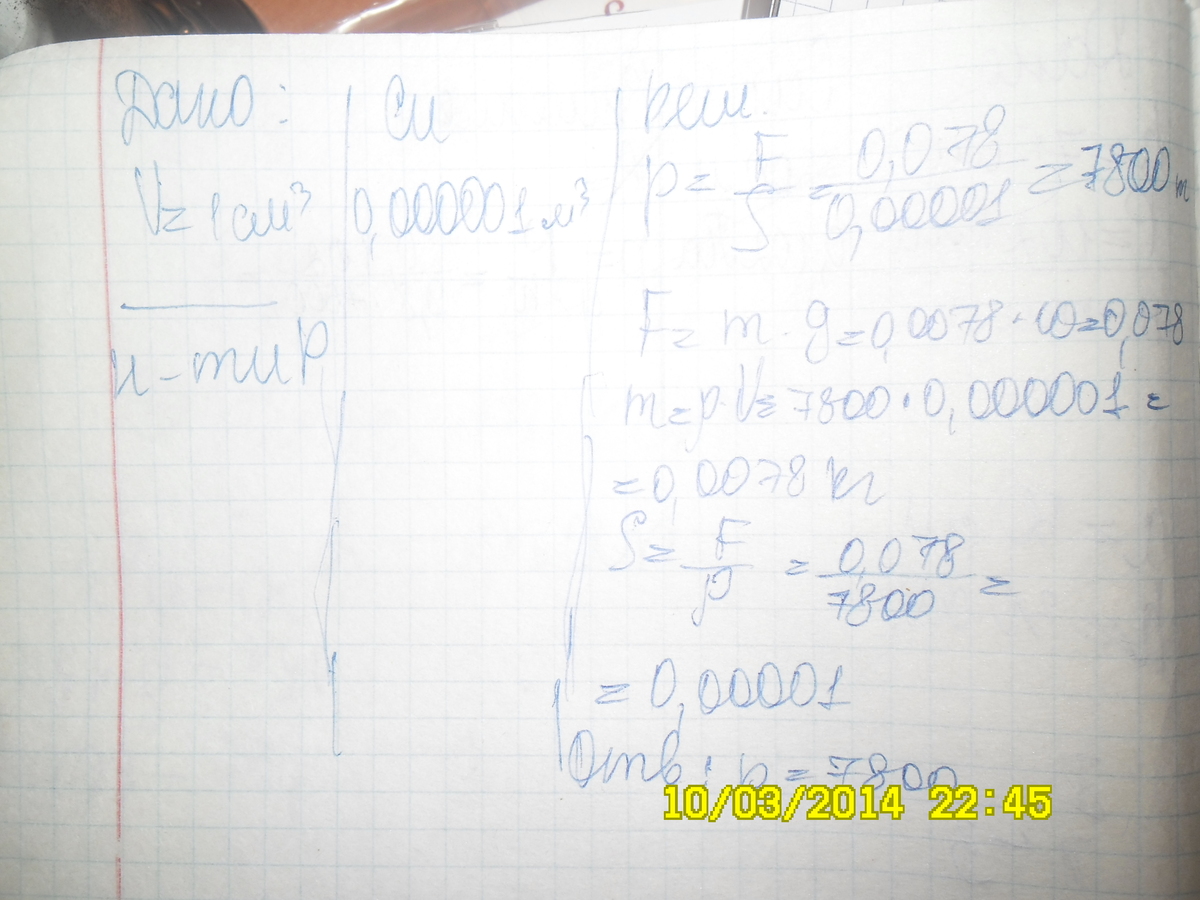 Дано:
V= 1 см³
н-ти p
Си
0,000001 м³
Реш.
p = F/S = 0,078/0,00001 = 7800
F= m · g = 0,0078 · 10 = 0,078
m = p · V = 7800 · 0,000001 =
= 0,0078 кг
S = F/p = 0,078/7800 =
= 0,00001
Отв: p = 7800
10/03/2014 22:45